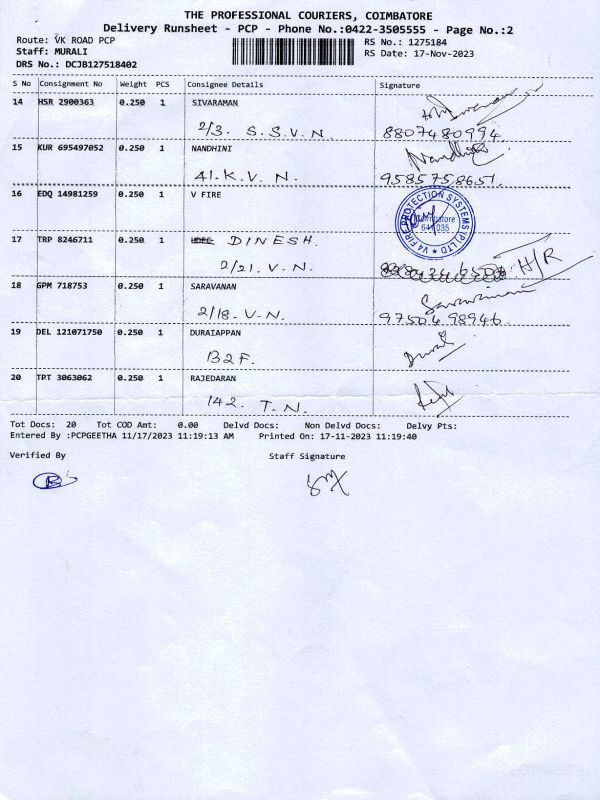 THE PROFESSIONAL COURIERS, COIMBATORE
Delivery Runsheet - PCP - Phone No.:0422-3505555 - Page No.:2
Route: VK ROAD PCP
RS No.: 1275184
Staff: MURALI
RS Date: 17-Nov-2023
DRS No.: DCJB127518402
S No Consignment No Weight PCS Consignee Details Signature
14 HSR 2900363 0.250 1 SIVARAMAN
2/3. S.S.V.N. 8807480994
15 KUR 695497052 0.250 1 NANDHINI Nandhini
41.K.V.N. 9585758651.
16 EDQ 14981259 0.250 1 V FIRE
V4 FIRE PROTECTION SYSTEMS (P) LTD
Coimbatore
641 035
17 TRP 8246711 0.250 1 DINESH.
2/21.V.N. H/R
18 GPM 718753 0.250 1 SARAVANAN Saravanan
2/18.V-N. 9750498946.
19 DEL 121071750 0.250 1 DURAIAPPAN
B2F.
20 TPT 3063062 0.250 1 RAJEDARAN
142. T.N.
Tot Docs: 20 Tot COD Amt: 0.00 Delvd Docs: Non Delvd Docs: Delvy Pts:
Entered By :PCPGEETHA 11/17/2023 11:19:13 AM Printed On: 17-11-2023 11:19:40
Verified By Staff Signature